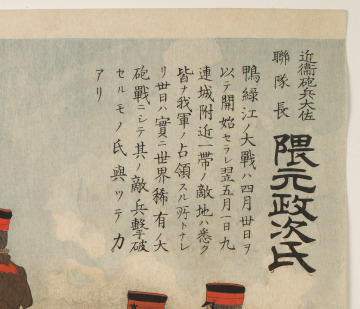 近衛砲兵大佐
聯隊長
隈元政次氏
鴨緑江ノ大戰ハ四月卅日ヲ
以テ開始セラレ翌五月一日九
連城附近一帶ノ敵地ハ悉ク
皆ナ我軍ノ占領スル所トナレ
リ卅日ハ實ニ世界稀有ノ大
砲戰ニシテ其ノ敵兵擊破
セルモノ氏與ツテ力
アリ